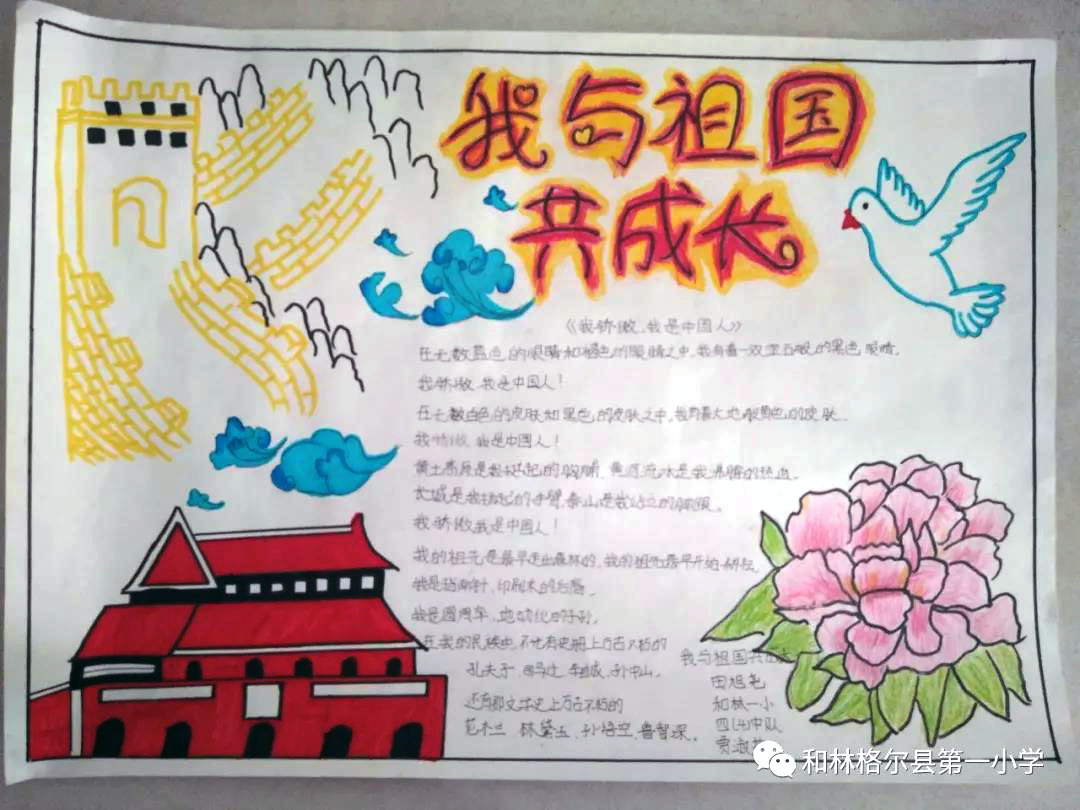 我与祖国
共成长
《我骄傲，我是中国人》
在无数蓝色的眼睛和褐色的眼睛之中，我有着一双宝石般的黑色眼睛。
我骄傲，我是中国人！
在无数白色的皮肤和黑色的皮肤之中，我有着大地般黄色的皮肤
我骄傲，我是中国人！
黄土高原是我挺起的胸脯，黄河流水是我沸腾的热血。
长城是我扬起的手臂，泰山是我站立的脚跟。
我骄傲，我是中国人！
我的祖先是最早走出森林的，我的祖先最早开始耕耘
我是指南针，印刷术的后裔。
我是圆周率，地动仪的子孙。
在我的民族中，不光有史册上万古不朽的
孔夫子 司马迁 李自成，孙中山。
还有那文学史上万古不朽的
花木兰 林黛玉 孙悟空 鲁智深。
我与祖国共成长
田旭
和林一小
四(4)中队
贾淑
和林格尔县第一小学